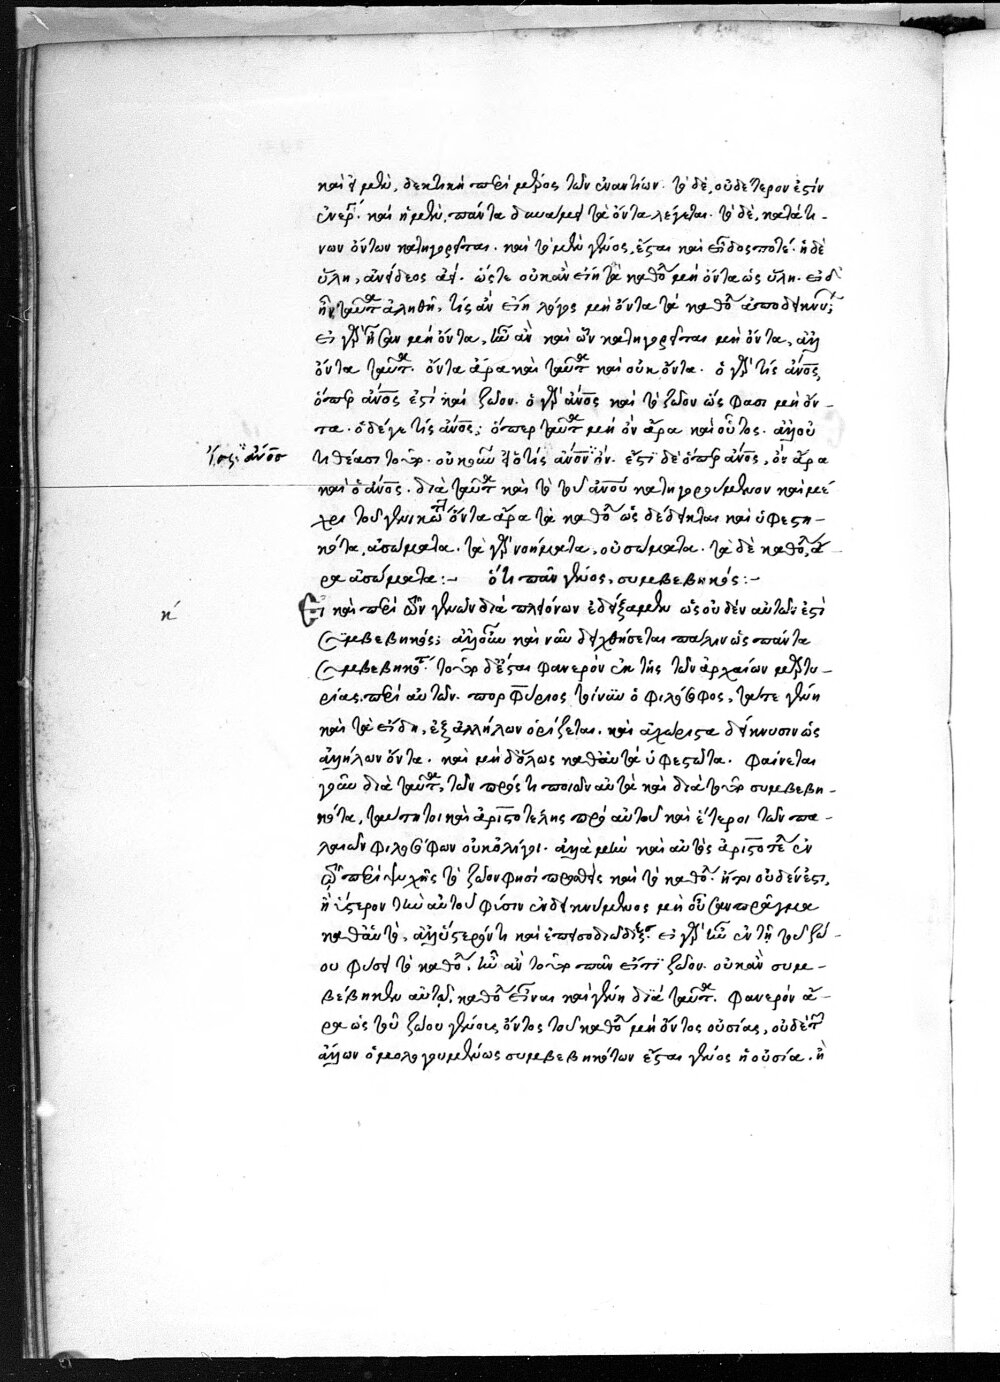 καὶ ἡ μὲν, δεκτικὴ παρὰ μέρος τῶν ἐναντίων. τὸ δὲ, οὐδέτερον ἐστὶν
ἐνεργ. καὶ ἡ μὲν, πάντα δυνάμει τὰ ὄντα λέγεται. τὸ δὲ, κατά τι-
νων ὄντων κατηγορεῖται. καὶ τὸ μὲν γένος, ἔσται καὶ εἶδος ποτέ. ἡ δὲ
ὕλη, ἀνείδεος ἀεί. ὥστε οὐκ ἂν εἴη τὰ καθόλου μὴ ὄντα ὡς ὕλη. εἰ δὲ
ἦν ταῦτα ἀληθῆ, τίς ἂν εἴη λόγος μὴ ὄντα τὰ καθόλου ἀποδεικνύς;
εἰ γὰρ ἦσαν μὴ ὄντα, ἦν ἂν καὶ ὧν κατηγορεῖται μὴ ὄντα, ἀλλ
ὄντα ταῦτα. ὄντα ἄρα καὶ ταῦτα καὶ οὐκ ὄντα. ὁ γάρ τις ἄνος,
ὅπερ ἄνος ἐστὶ καὶ ζῶον. ὁ γὰρ ἄνος καὶ τὸ ζῶον ὥς φασι μὴ ὄν-
τα. ὁ δέ γε τὶς ἄνος; ὅπερ ταῦτα μὴ ὂν ἄρα καὶ οὗτος. ἀλλ οὐ
τιθέασι τοῦτο. οὐκοῦν εἰ ὁ τὶς ἄνος ὄν. ἔστι δὲ ὅπερ ἄνος, ὂν ἄρα
καὶ ὁ ἄνος. διὰ ταῦτα καὶ τὸ τοῦ ἀνου κατηγορούμενον καὶ μέ-
χρι τοῦ γενικωτ ὄντα ἄρα τὰ καθόλου ὡς δέδεικται καὶ ὑφεστη-
κότα, ἀσώματα. τὰ γὰρ νοήματα, οὐ σώματα. τὰ δὲ καθόλου, ἄ-
ρα ἀσώματα:- ὅτι πᾶν γένος, συμβεβηκός:-
Εἰ καὶ περὶ τῶν γενῶν διὰ πλειόνων ἐδείξαμεν ὡς οὐδὲν αὐτῶν ἐστὶ
συμβεβηκός; ἀλλ οὖν καὶ νῦν δειχθήσεται πάλιν ὡς πάντα
συμβεβηκότα. τοῦτο δὲ ἔσται φανερὸν ἐκ τῆς τῶν ἀρχαίων μαρτυ-
ρίας, περὶ αὐτῶν. πορφύριος τοίνυν ὁ φιλόσοφος, τά τε γένη
καὶ τὰ εἴδη, ἐξ ἀλλήλων ὁρίζεται. καὶ ἀχώριστα δείκνυσιν ὡς
ἀλλήλων ὄντα. καὶ μηδόλως καθ αὑτὰ ὑφεστῶτα. φαίνεται
γοῦν διὰ ταῦτα, τῶν πρός τι ποιῶν αὐτὰ καὶ διὰ τοῦτο συμβεβη-
κότα, ταύτῃ τοι καὶ ἀριστοτέλης πρὸ αὐτοῦ καὶ ἕτεροι τῶν πα-
λαιῶν φιλοσόφων οὐκ ὀλίγοι. ἀλλὰ μὲν καὶ αὐτὸς ἀριστοτέλης ἐν
τῷ περὶ ψυχῆς τὸ ζῶον φησὶ προσθεὶς καὶ τὸ καθόλου. ἤτοι οὐδέν ἐστι,
ἢ ὕστερον τὴν αὐτοῦ φύσιν ἐνδεικνύμενος μὴ οὖσαν πρᾶγμα
καθ αὑτὸ, ἀλλ ὕστερόν τι καὶ ἐπεισοδιῶδες. εἰ γὰρ ἦν ἐν τῇ τοῦ ζώ-
ου φύσει τὸ καθόλου, ἦν ἂν τοῦτο πᾶν εἴ τι ζῶον. οὐκ ἂν συμ-
βέβηκεν αὐτῷ, καθόλου εἶναι καὶ γένη διὰ ταῦτα. φανερὸν ἄ-
ρα ὡς τοῦ ζώου γένους ὄντος τοῦ καθόλου μὴ ὄντος οὐσίας, οὐδὲ τ
ἄλλων ὁμολογουμένως συμβεβηκότων ἔσται γένος ἡ οὐσία. ἢ
ἄνος
κ